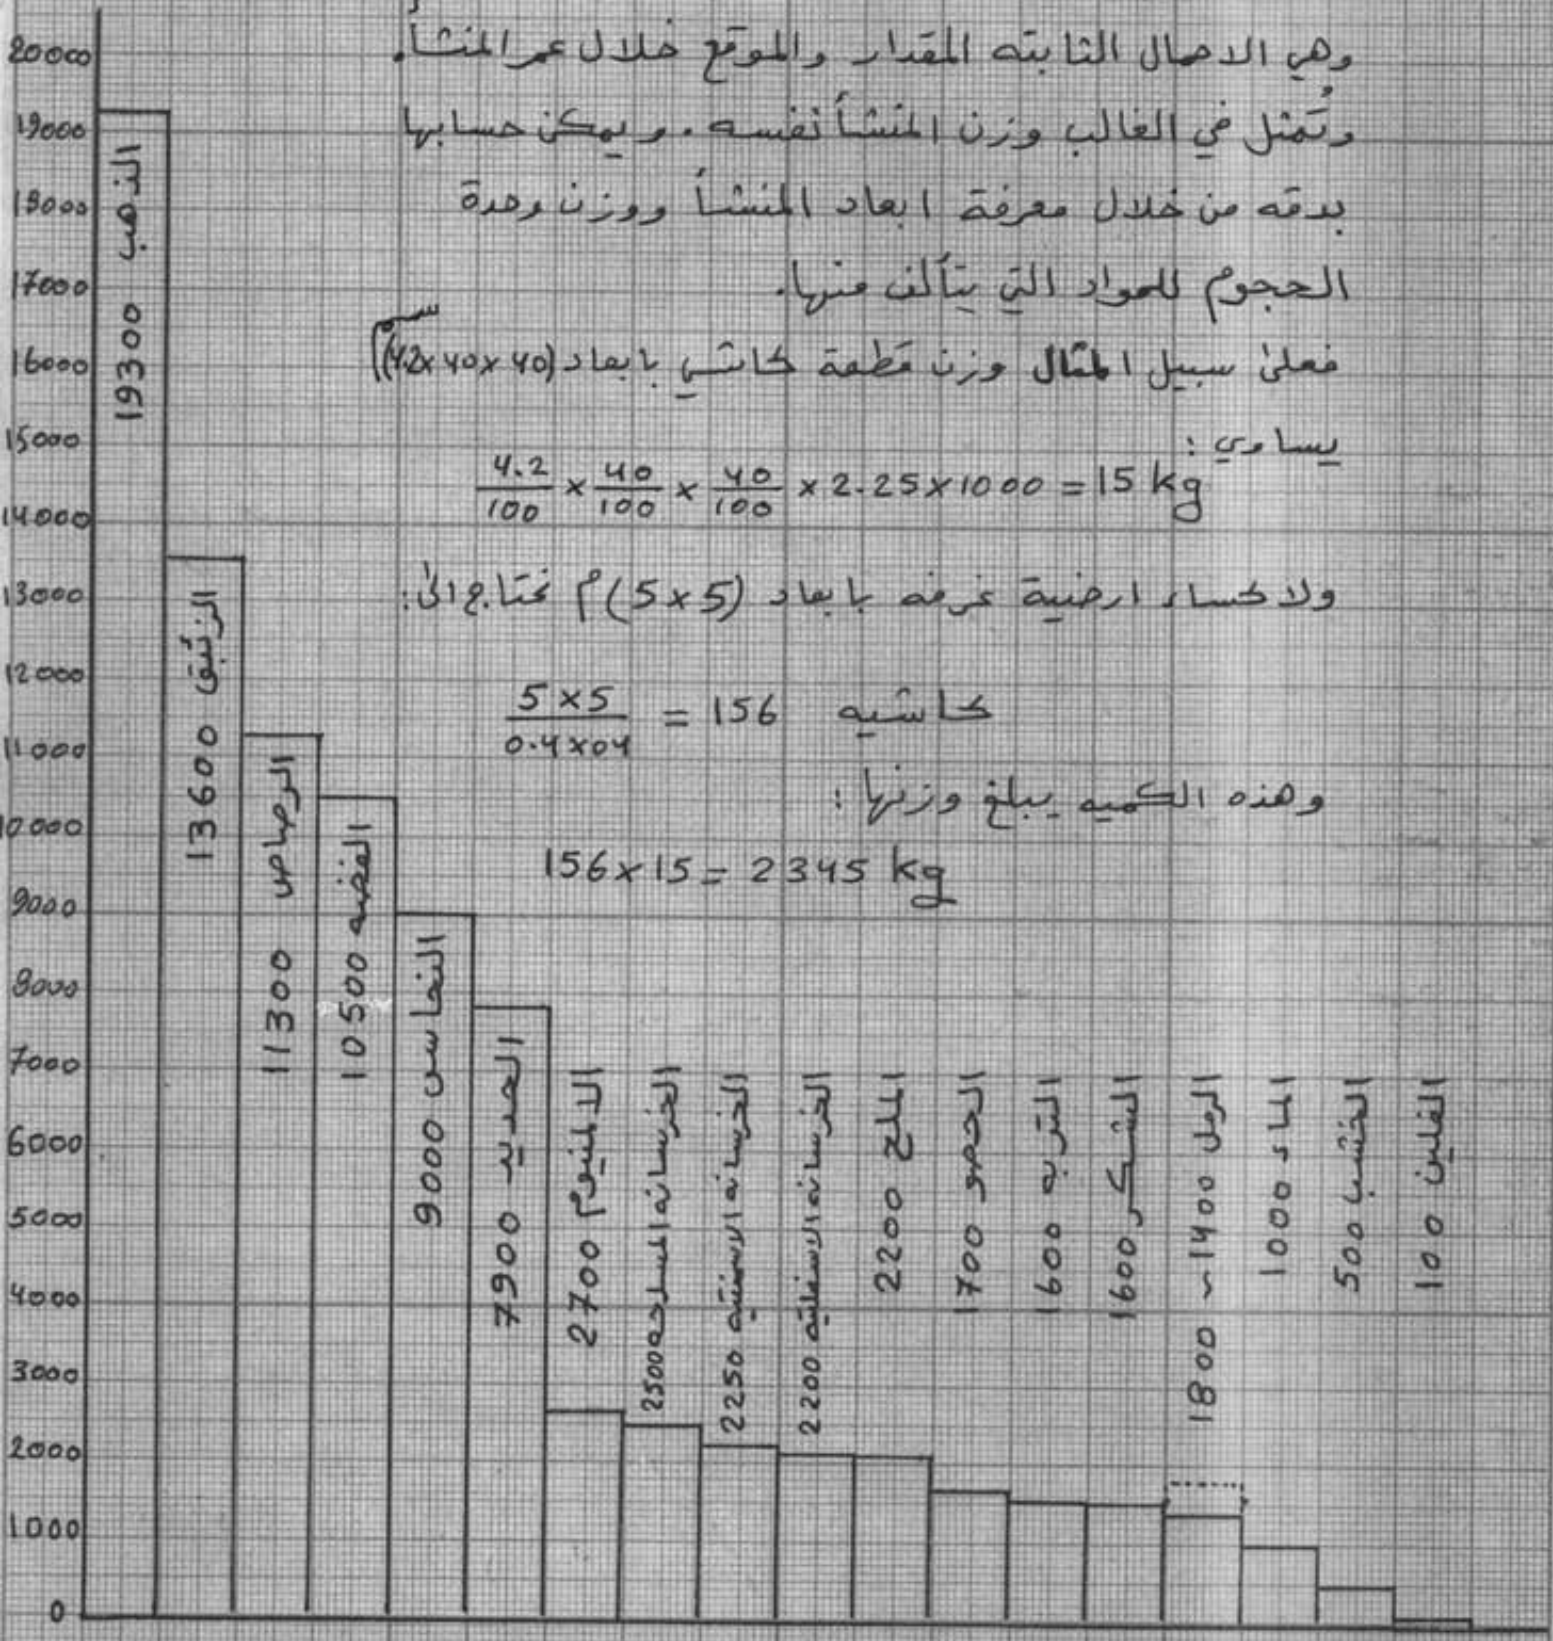 وهي الاحمال الثابته المقدار والموقع خلال عمر المنشأ.
وتُمثل في الغالب وزن المنشأ نفسه. ويمكن حسابها
بدقه من خلال معرفة ابعاد المنشأ ووزن وحدة
الحجوم للمواد التي يتألف منها.
فعلى سبيل المثال وزن قطعة كاشي بابعاد (40×40×4.2) سم
يساوي :
4.2/100 × 40/100 × 40/100 × 2.25 × 1000 = 15 kg
ولاكساء ارضية غرفه بابعاد (5×5) م نحتاج الى:
5×5/0.4×04 = 156 كاشيه
وهذه الكميه يبلغ وزنها :
156×15 = 2345 kg
20000
19000
18000
17000
16000
15000
14000
13000
12000
11000
10000
9000
8000
7000
6000
5000
4000
3000
2000
1000
0
الذهب 19300
الزئبق 13600
الرصاص 11300
الفضه 10500
النحاس 9000
الحديد 7900
الالمنيوم 2700
الخرسانه المسلحه 2500
الخرسانه الاسمنتيه 2250
الخرسانه الاسفلتيه 2200
الملح 2200
الحصو 1700
التربه 1600
الشكر 1600
الرمل 1400 ~ 1800
الماء 1000
الخشب 500
الفلين 100